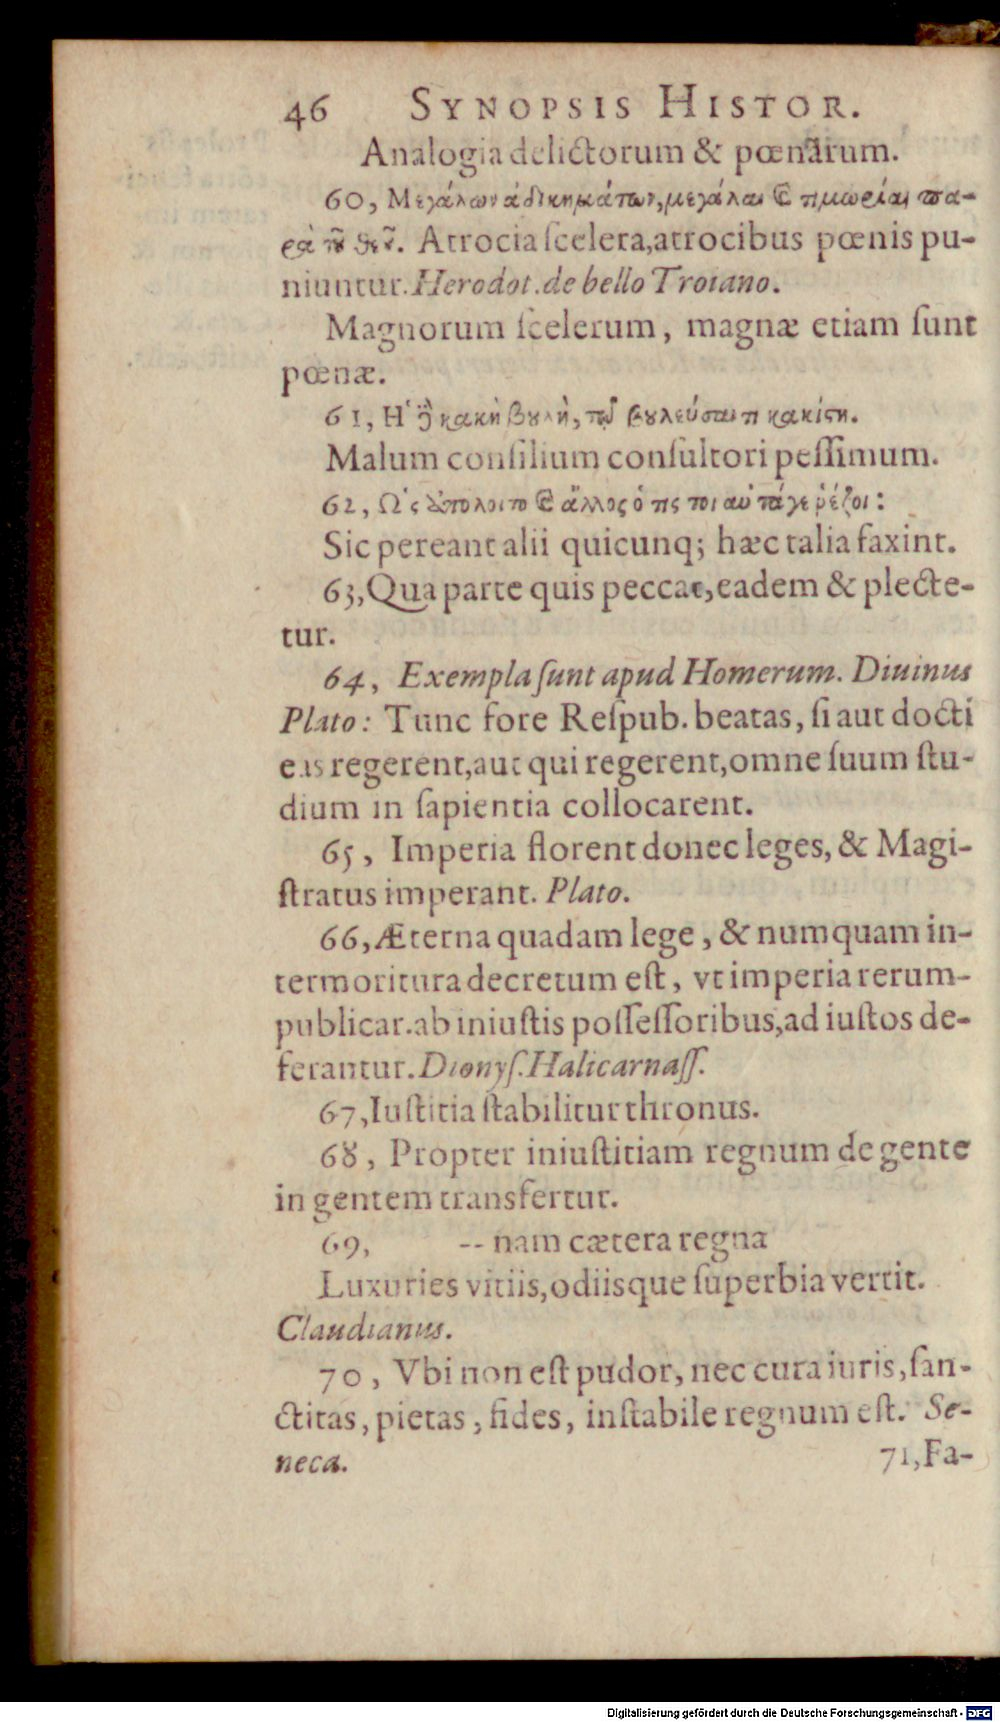 46 SYNOPSIS HISTOR.
Analogia delictorum & pœnarum.
60, Μεγάλων ἀδικημάτων, μεγάλαι ϗ τιμωρίαι πα-
ρὰ τȣ͂ θεȣ͂. Atrocia ſcelera, atrocibus pœnis pu-
niuntur. Herodot. de bello Troiano.
Magnorum ſcelerum, magnæ etiam ſunt
pœnæ.
61, Η῾ δὲ κακὴ βȣλὴ, τῷ βȣλεύσαντι κακίστη.
Malum conſilium conſultori peſſimum.
62, Ως ἀπόλοιτο ϗ ἄλλος ὁ τις τοιαῦτά γε ῥέζοι:
Sic pereant alii quicunq; hæc talia faxint.
63, Qua parte quis peccat, eadem & plecte-
tur.
64, Exempla ſunt apud Homerum. Diuinus
Plato: Tunc fore Reſpub. beatas, ſi aut docti
eas regerent, aut qui regerent, omne ſuum ſtu-
dium in ſapientia collocarent.
65, Imperia florent donec leges, & Magi-
ſtratus imperant. Plato.
66, Æterna quadam lege, & numquam in-
termoritura decretum eſt, vt imperia rerum-
publicar. ab iniuſtis poſſeſſoribus, ad iuſtos de-
ferantur. Dionyſ. Halicarnaſſ.
67, Iuſtitia ſtabilitur thronus.
68, Propter iniuſtitiam regnum de gente
in gentem transfertur.
69, -- nam cætera regna
Luxuries vitiis, odiisque ſuperbia vertit.
Claudianus.
70, Vbi non eſt pudor, nec cura iuris, ſan-
ctitas, pietas, fides, inſtabile regnum eſt. Se-
neca. 71, Fa-
Digitalisierung gefördert durch die Deutsche Forschungsgemeinschaft - DFG